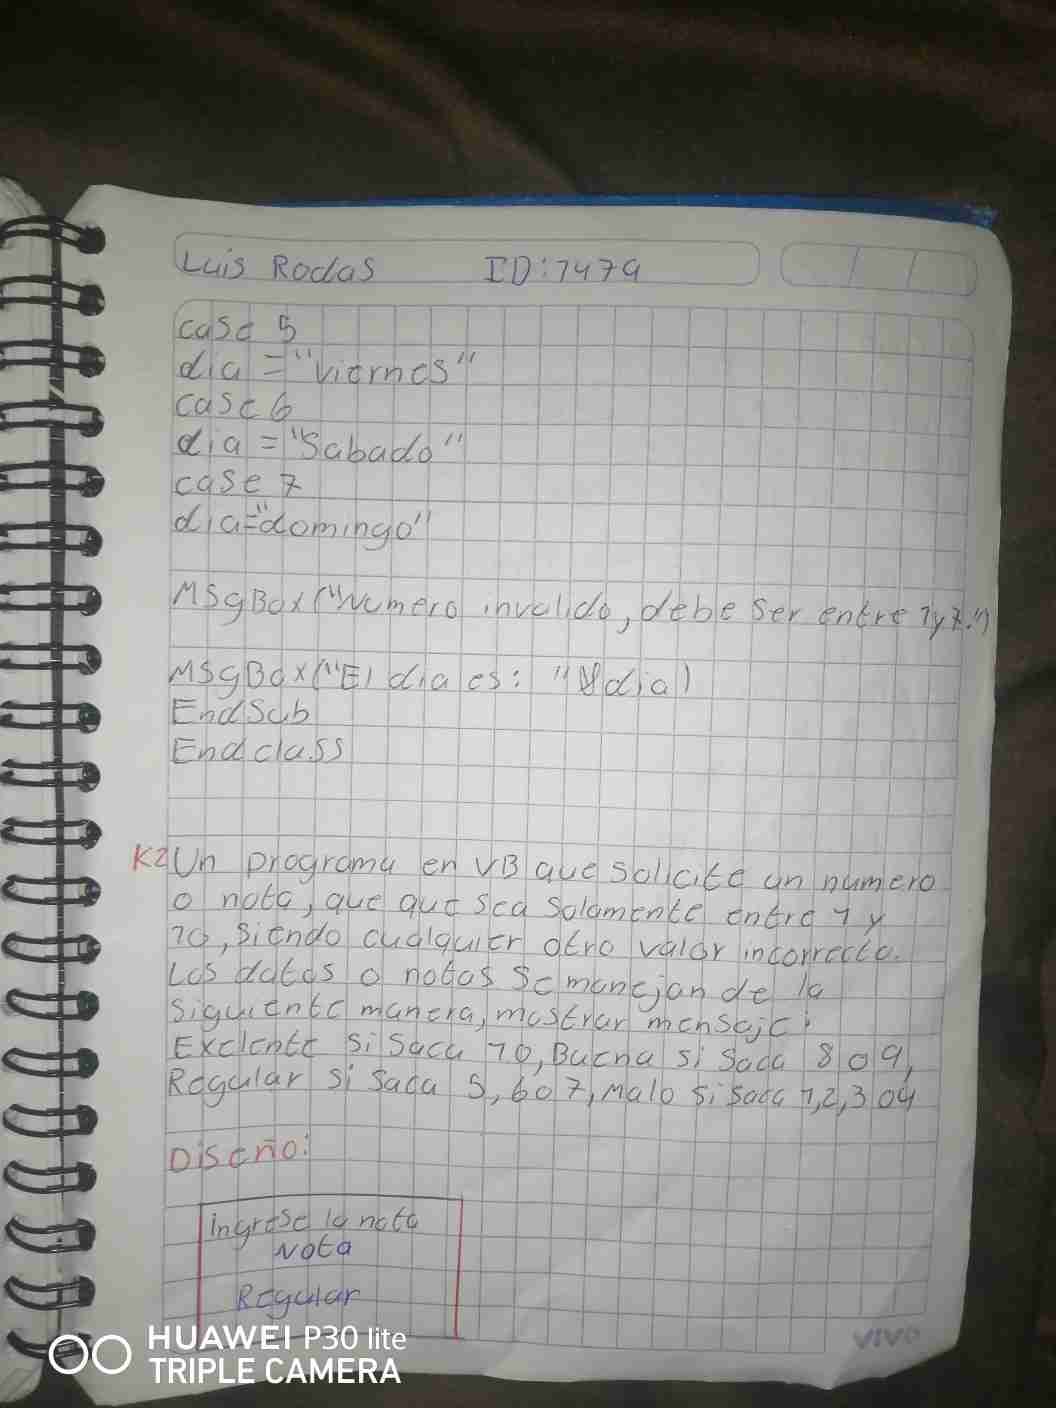 Luis Rodas ID:7479
case 5
dia = "viernes"
case 6
dia = "Sabado"
case 7
dia="domingo"
MSgBox("Numero invalido, debe ser entre 1y7.")
MSgBox("El dia es: "&dia)
End Sub
End class
K2 Un programa en VB que solicite un numero
o nota, que que sea solamente entre 1 y
10, siendo cualquier otro valor incorrecto.
Los datos o notas se manejan de la
siguiente manera, mostrar mensaje:
Exelente si saca 10, Buena si saca 8 o 9,
Regular si saca 5, 6 o 7, Malo si saca 1,2,3 o4
Diseño:
ingrese la nota
Nota
Regular
vivo
HUAWEI P30 lite
TRIPLE CAMERA